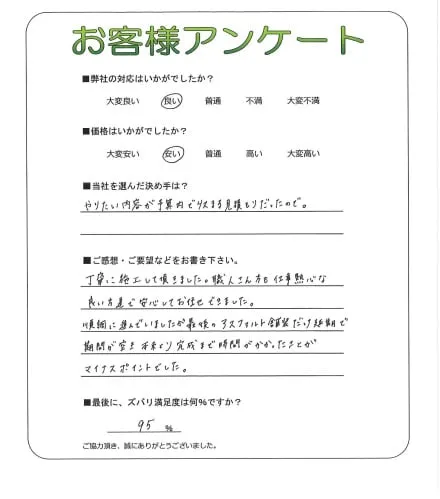 お客様アンケート
■弊社の対応はいかがでしたか？
大変良い 良い 普通 不満 大変不満
■価格はいかがでしたか？
大変安い 安い 普通 高い 大変高い
■当社を選んだ決め手は？
やりたい内容が予算内で収まる見積もりだったので。
■ご感想・ご要望などをお書き下さい。
丁寧に施工して頂きました。職人さん方も仕事熱心な
良い方達で安心してお任せできました。
順調に進んでいましたが最後のアスファルト舗装だけ延期で
期間が空き 予定より完成まで時間がかかったことが
マイナスポイントでした。
■最後に、ズバリ満足度は何%ですか？
95 %
ご協力頂き、誠にありがとうございました。